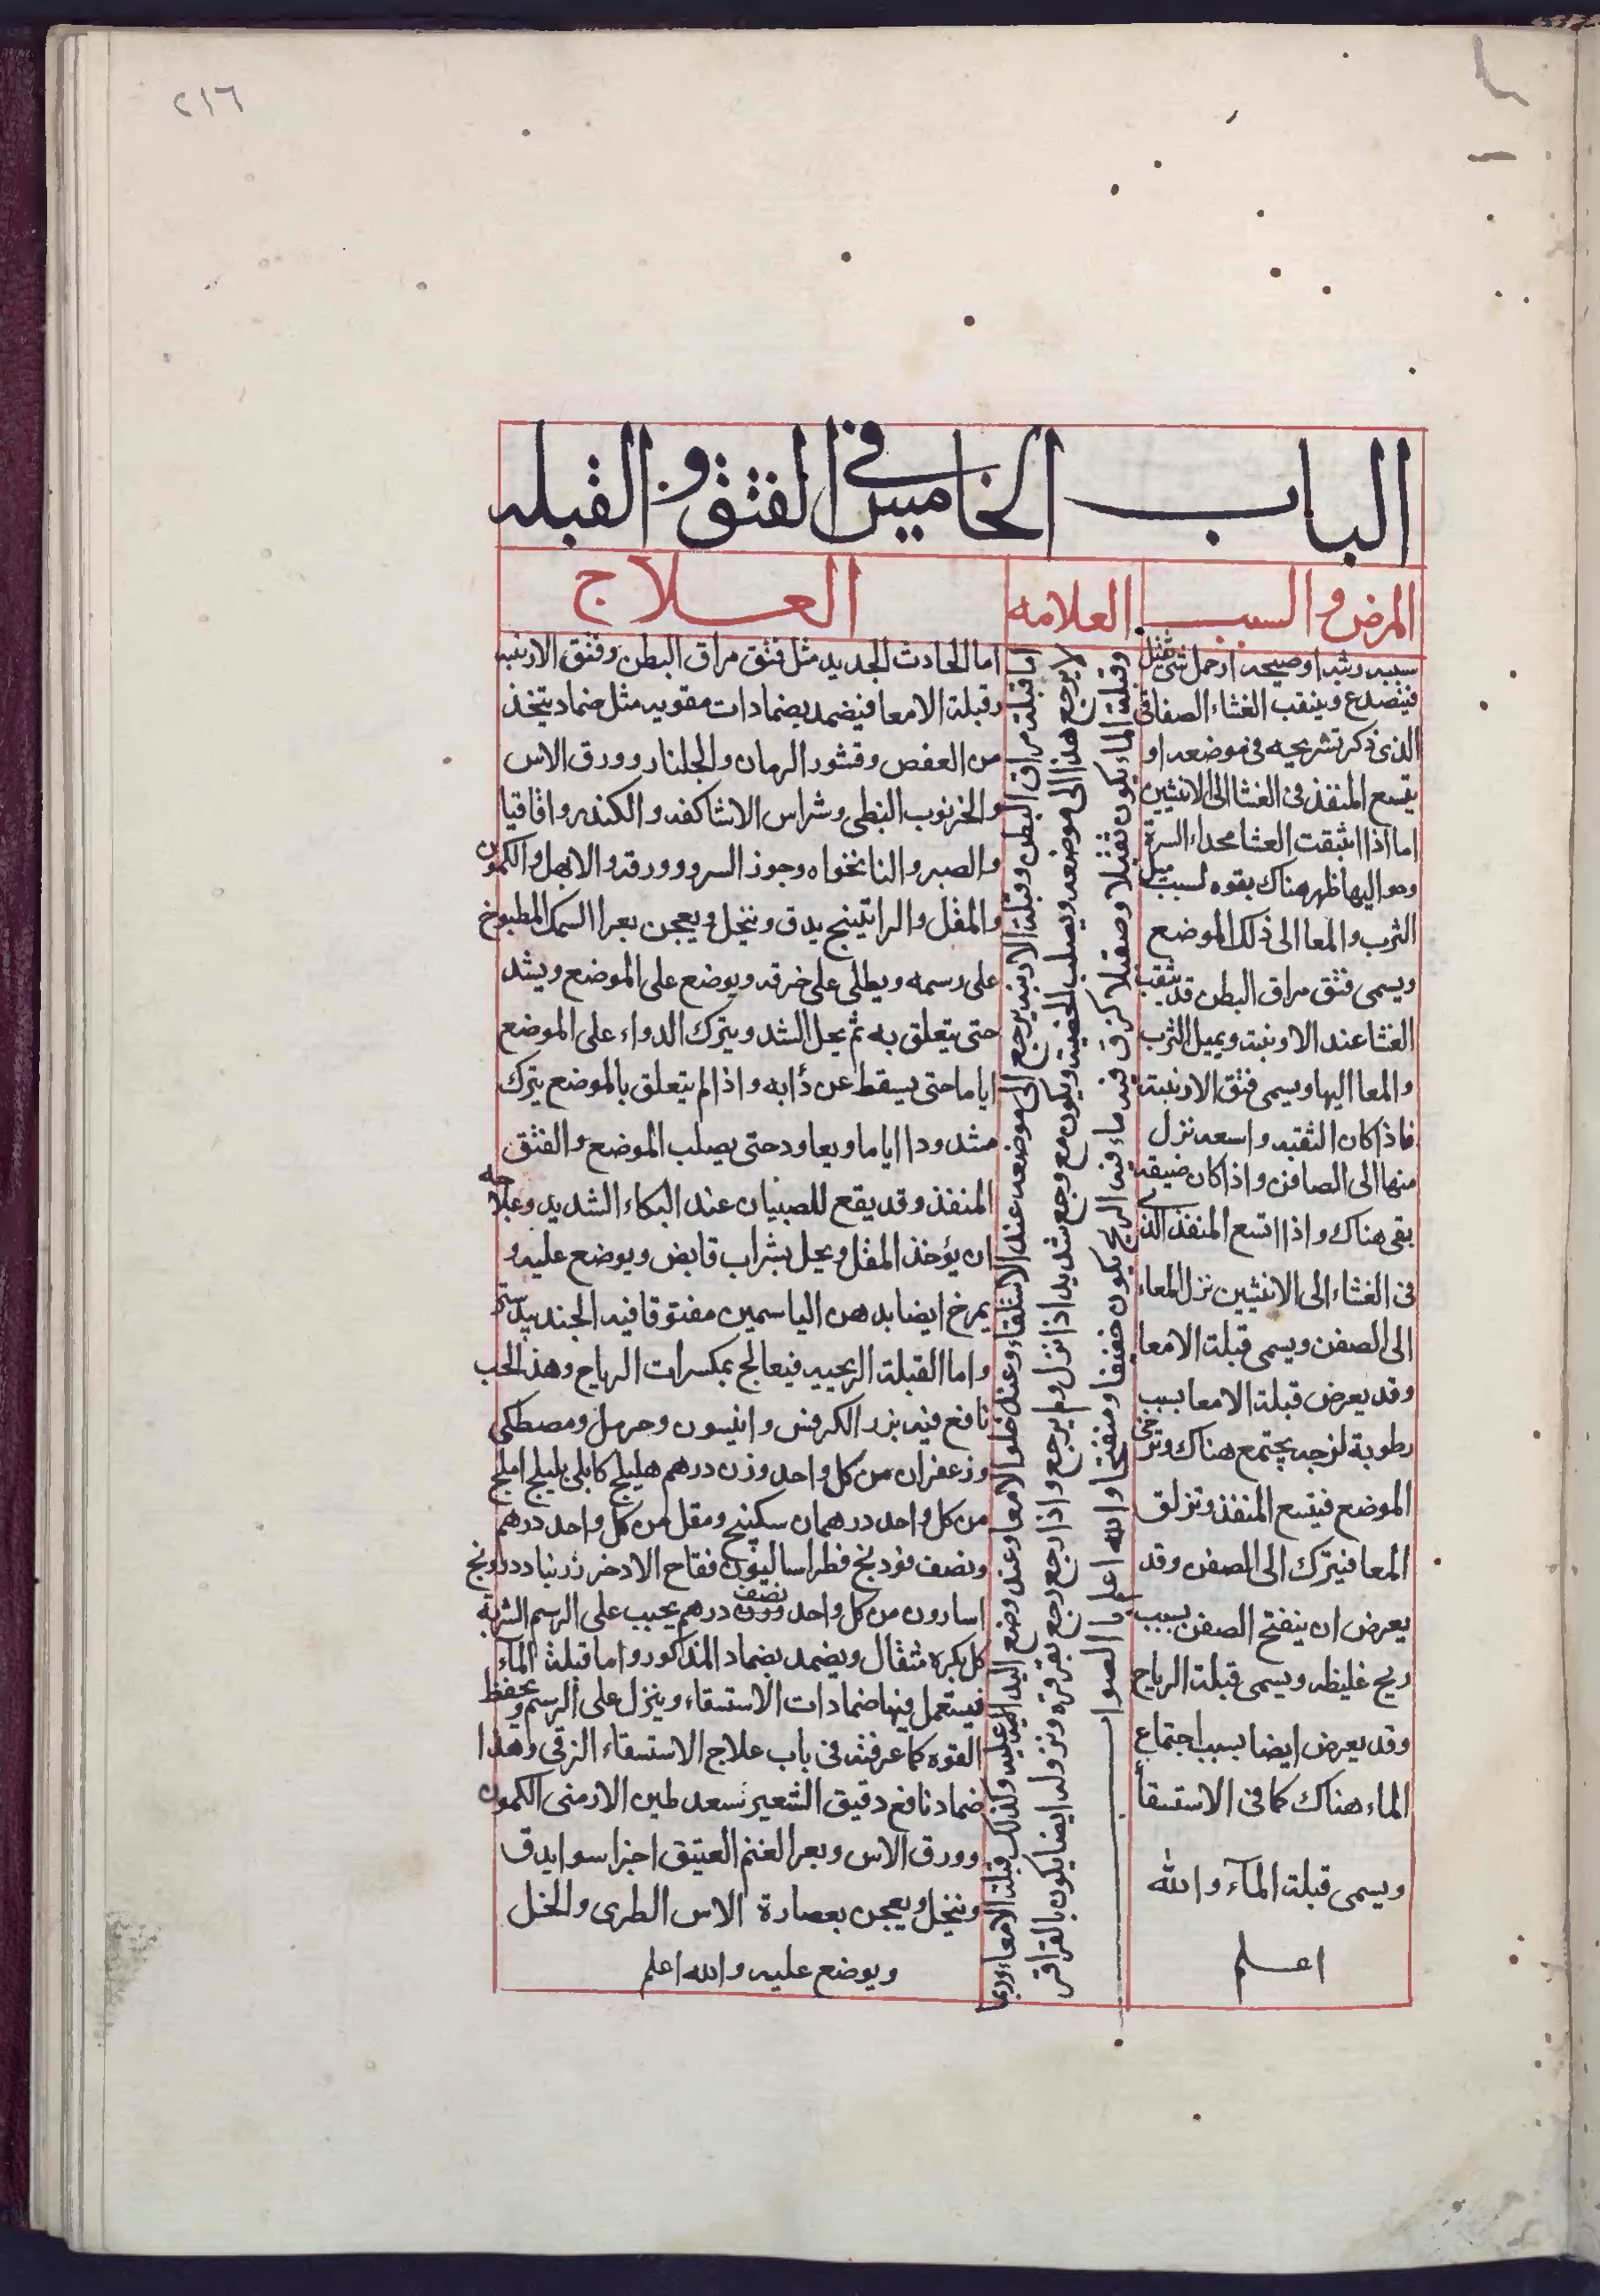 ٢١٦
الباب الخامس فى الفتق و القيله
المرض و السبب
العلامه
العلاج
سببه وثبه او صيحه او حمل شى ثقيل
فينصدع وينقب الغشاء الصفاقى
الذى ذكر تشريحه فى موضعه او
يتسع المنفذ فى الغشا الى الانثيين
اما اذا انثقبت الغشا محداء السرة
وحواليها ظهر هناك بقوه لسبب ميل
الثرب والمعا الى ذلك الموضع
ويسمى فتق مراق البطن قد يثقب
الغشا عند الاربية ويميل الثرب
والمعا اليها ويسمى فتق الاربية
فاذا كان الثقبه واسعه نزل
منها الى الصافن واذا كان ضيقه
بقى هناك واذا اتسع المنفذ الذى
فى الغشاء الى الانثيين نزل المعاء
الى الصفن ويسمى قيلة الامعا
وقد يعرض قيلة الامعا بسبب
رطوبة لزجه يجتمع هناك وترخى
الموضع فيتسع المنفذ وتزلق
المعا فيترك الى الصفن وقد
يعرض ان ينفتح الصفن بسبب
ريح غليظه ويسمى قيلة الرياح
وقد يعرض ايضا بسبب اجتماع
الماء هناك كما فى الاستسقا
ويسمى قيلة المآء والله
اعلم
اما قيلة مراق البطن وقيلة الاربيه يرجع الى موضعه عند الاستلقاء وعند خلو الامعا وعند وضع اليد عليه وكذلك قيلة الامعاء وربما
لا يرجع هذا الى موضعه ويصلب الخصية ويكون مع وجع شديد اذا نزل ولم يرجع واذا رجع رجع بقرقره ونزوله ايضا يكون بالقراقر
وقيلة الماء يكون ثقيلا وصقيلا كزق فيه ماء فيه الريح يكون خفيفا ومنفتخا والله اعلم بالصواب
اما الحادث الجديد مثل فتق مراق البطن وفتق الاربيه
وقيلة الامعا فيضمد بضمادات مقويه مثل ضماد يتخذ
من العفص وقشور الرمان والجلنار وورق الاس
والخرنوب النبطى وشراس الاشاكفه والكندر واقاقيا
والصبر والنانخواه وجوز السرو وورقه والابهل والكمون
والمقل والراتينج يدق وينخل ويعجن بعرا السمك المطبوخ
على رسمه ويطلى على خرقه ويوضع على الموضع ويشد
حتى يتعلق به ثم يحل الشد ويترك الدواء على الموضع
اياما حتى يسقط عن ذابه واذا لم يتعلق بالموضع يترك
مشدودا اياما ويعاود حتى يصلب الموضع والفتق
المنفذ وقد يقع للصبيان عند البكاء الشديد وعلاجه
ان يؤخذ المقل ويحل بشراب قابض ويوضع عليه و
يمرخ ايضا بدهن الياسمين مفتوقا فيه الجندبيدستر
واما القيلة الريحيه فيعالج بمكسرات الرياح وهذا الحب
نافع فيه بزر الكرفس وانيسون وحرمل ومصطكى
وزعفران من كل واحد وزن درهم هليلج كابلى بليلج املج
من كل واحد درهمان سكبينج ومقل من كل واحد درهم
ونصف فودنج فطراساليون فقاح الاذخر زرنباد درونج
اسارون من كل واحد وزن نصف درهم يحبب على الرسم الشربة
كل بكره مثقال ويضمد بضماد المذكور واما قيلة المآء
فيستعمل فيها ضمادات الاستسقاء وينزل على الرسم ويحفظ
القوه كما عرفته فى باب علاج الاستسقاء الزقى وهذا
ضماد نافع دقيق الشعير سعد طين الارمنى الكمون
وورق الاس وبعر الغنم العتيق اجزا سوا يدق
وينخل ويعجن بعصارة الاس الطرى والخل
ويوضع عليه والله اعلم